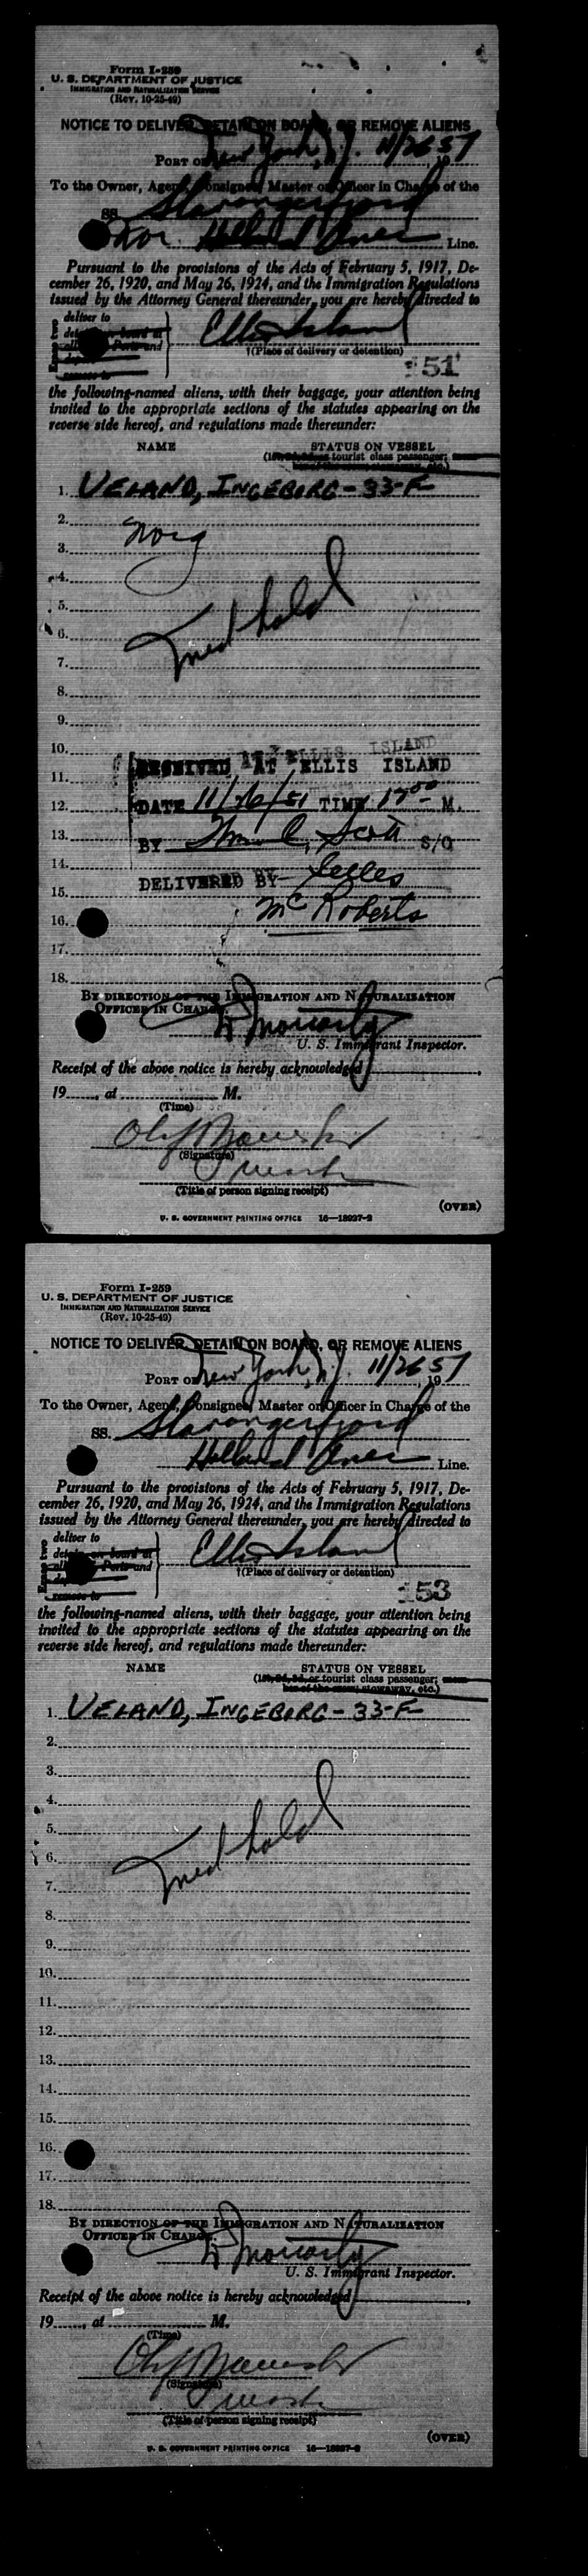 Form I-259
U. S. DEPARTMENT OF JUSTICE
IMMIGRATION AND NATURALIZATION SERVICE
(Rev. 10-25-49)
NOTICE TO DELIVER, DETAIN ON BOARD, OR REMOVE ALIENS
PORT OF New York, N.Y. 11/26 51, 19
To the Owner, Agent, Consignee, Master or Officer in Charge of the
SS. Stavangerfjord
Nor. Line.
Pursuant to the provisions of the Acts of February 5, 1917, De-
cember 26, 1920, and May 26, 1924, and the Immigration Regulations
issued by the Attorney General thereunder, you are hereby directed to
deliver to
Ellis Island
Erase two
†(Place of delivery or detention)
51
the following-named aliens, with their baggage, your attention being
invited to the appropriate sections of the statutes appearing on the
reverse side hereof, and regulations made thereunder:
NAME STATUS ON VESSEL
tourist class passenger;
1. VELAND, INGEBORG - 33-F
2. Norg
3.
4.
5.
6. med hold
7.
8.
9.
10. ELLIS ISLAND
RECEIVED AT ELLIS ISLAND
11.
12. DATE 11/26/51 TIME 1700 M.
13. BY Scott S/O
14.
DELIVERED BY
15.
16. McRoberts
17.
18.
BY DIRECTION OF THE IMMIGRATION AND NATURALIZATION
OFFICER IN CHARGE.
Moriarty
U. S. Immigrant Inspector.
Receipt of the above notice is hereby acknowledged
19, at M.
(Time)
Olaf
(Signature)
(Title of person signing receipt)
(OVER)
U. S. GOVERNMENT PRINTING OFFICE 16—18927-2
Form I-259
U. S. DEPARTMENT OF JUSTICE
IMMIGRATION AND NATURALIZATION SERVICE
(Rev. 10-25-49)
NOTICE TO DELIVER, DETAIN ON BOARD, OR REMOVE ALIENS
PORT OF New York, N.Y. 11/26 51, 19
To the Owner, Agent, Consignee, Master or Officer in Charge of the
SS. Stavangerfjord
Line.
Pursuant to the provisions of the Acts of February 5, 1917, De-
cember 26, 1920, and May 26, 1924, and the Immigration Regulations
issued by the Attorney General thereunder, you are hereby directed to
deliver to
Ellis Island
Erase two
†(Place of delivery or detention)
53
the following-named aliens, with their baggage, your attention being
invited to the appropriate sections of the statutes appearing on the
reverse side hereof, and regulations made thereunder:
NAME STATUS ON VESSEL
tourist class passenger;
1. VELAND, INGEBORG - 33-F
2.
3.
4.
5.
6. med hold
7.
8.
9.
10.
11.
12.
13.
14.
15.
16.
17.
18.
BY DIRECTION OF THE IMMIGRATION AND NATURALIZATION
OFFICER IN CHARGE.
Moriarty
U. S. Immigrant Inspector.
Receipt of the above notice is hereby acknowledged
19, at M.
(Time)
Olaf
(Signature)
(Title of person signing receipt)
(OVER)
U. S. GOVERNMENT PRINTING OFFICE 16—18927-2